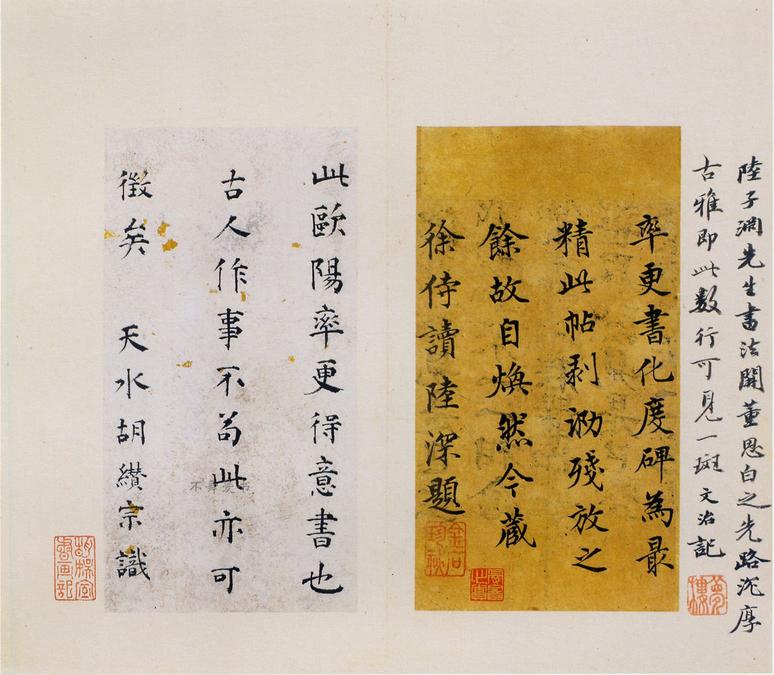 陸子淵先生書法開董思白之先路沉厚
古雅即此數行可見一斑 文治記
夢樓
率更書化度碑為最
精此帖剥泐殘放之
餘故自煥然今藏
徐侍讀 陸深題
此歐陽率更得意書也
古人作事不苟此亦可
徵矣 天水胡纘宗識